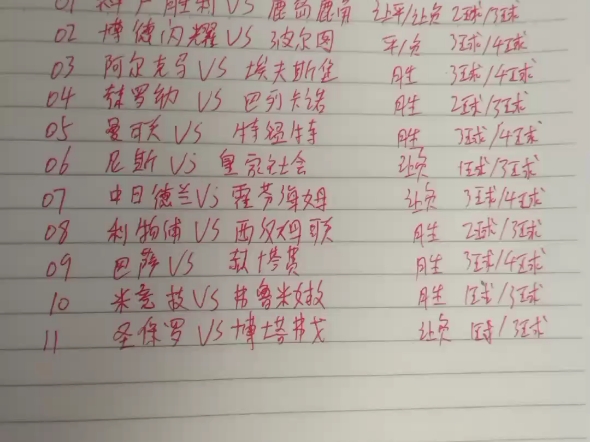 01 神户胜利 VS 鹿岛鹿角 让平/让负 2球/3球
02 博德闪耀 VS 波尔图 平/负 3球/4球
03 阿尔克马 VS 埃夫斯堡 胜 3球/4球
04 赫罗纳 VS 巴列卡诺 胜 2球/3球
05 曼可联 VS 特温特 胜 3球/4球
06 尼斯 VS 皇家社会 让负 1球/3球
07 中日德兰 VS 霍芬海姆 让负 3球/4球
08 利物浦 VS 西汉姆联 胜 2球/3球
09 巴萨 VS 赫塔费 胜 3球/4球
10 米竞技 VS 弗鲁米嫩 胜 1球/3球
11 圣保罗 VS 博塔弗戈 让负 1球/3球